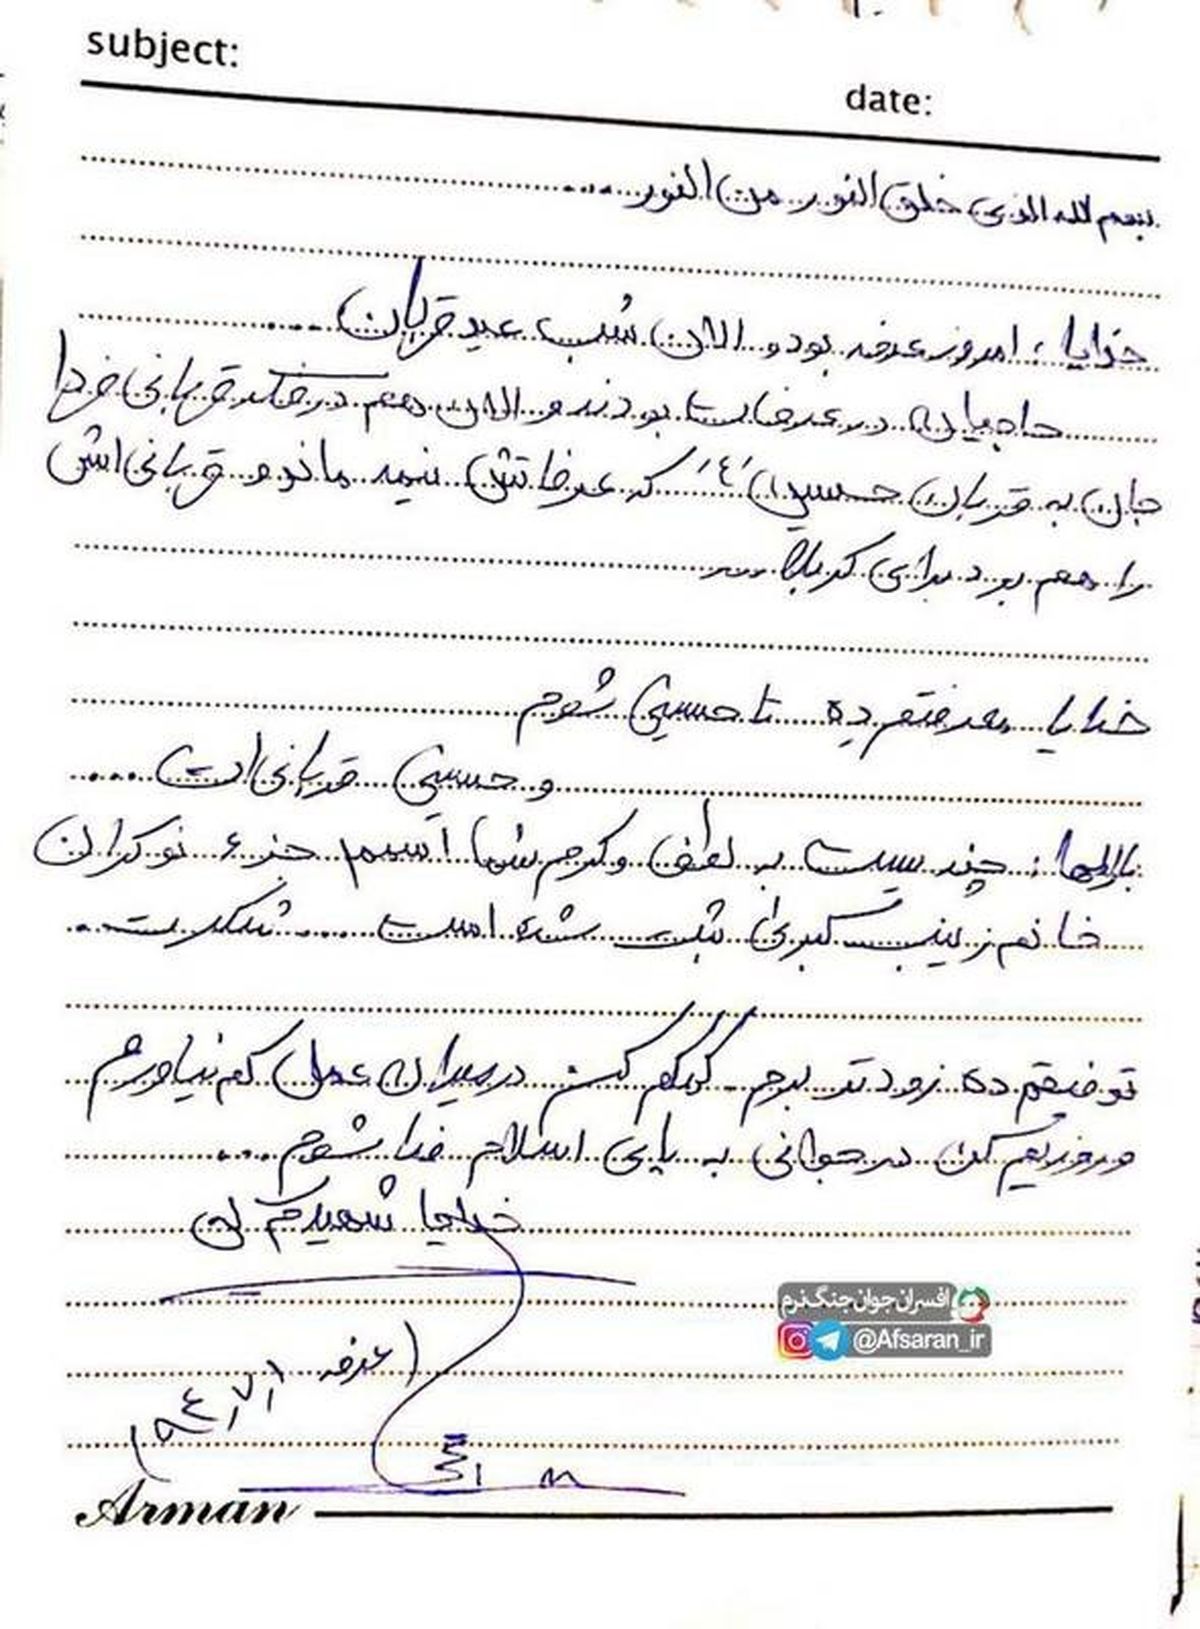 subject:
date:
بسم الله الذی خلق النور من النور....
خدایا ؛ امروز عرفه بود و الان شب عید قربان ....
حاجیان در عرفات بودند و الان هم در فکر قربانی فردا
جان به قربان حسین (ع) که عرفاتش نیمه ماند و قربانی اش
را هم برد برای کربلا ....
خدایا معرفتم ده تا حسینی شوم
و حسینی قربانی ات ....
بارالها ؛ چندیست به لطف و کرم شما اسمم جزء نوکران
خانم زینب کبری ثبت شده است ..... شکرت..
توفیقم ده زودتر بروم کمکم کن در میدان عمل کم نیاورم
و روزیم کن در جوانی به پای اسلام فدا شوم ....
خدایا شهیدم کن
عرفه ۱۳۹۴/۷/۱
افسران جوان جنگ نرم
@Afsaran_ir
Arman